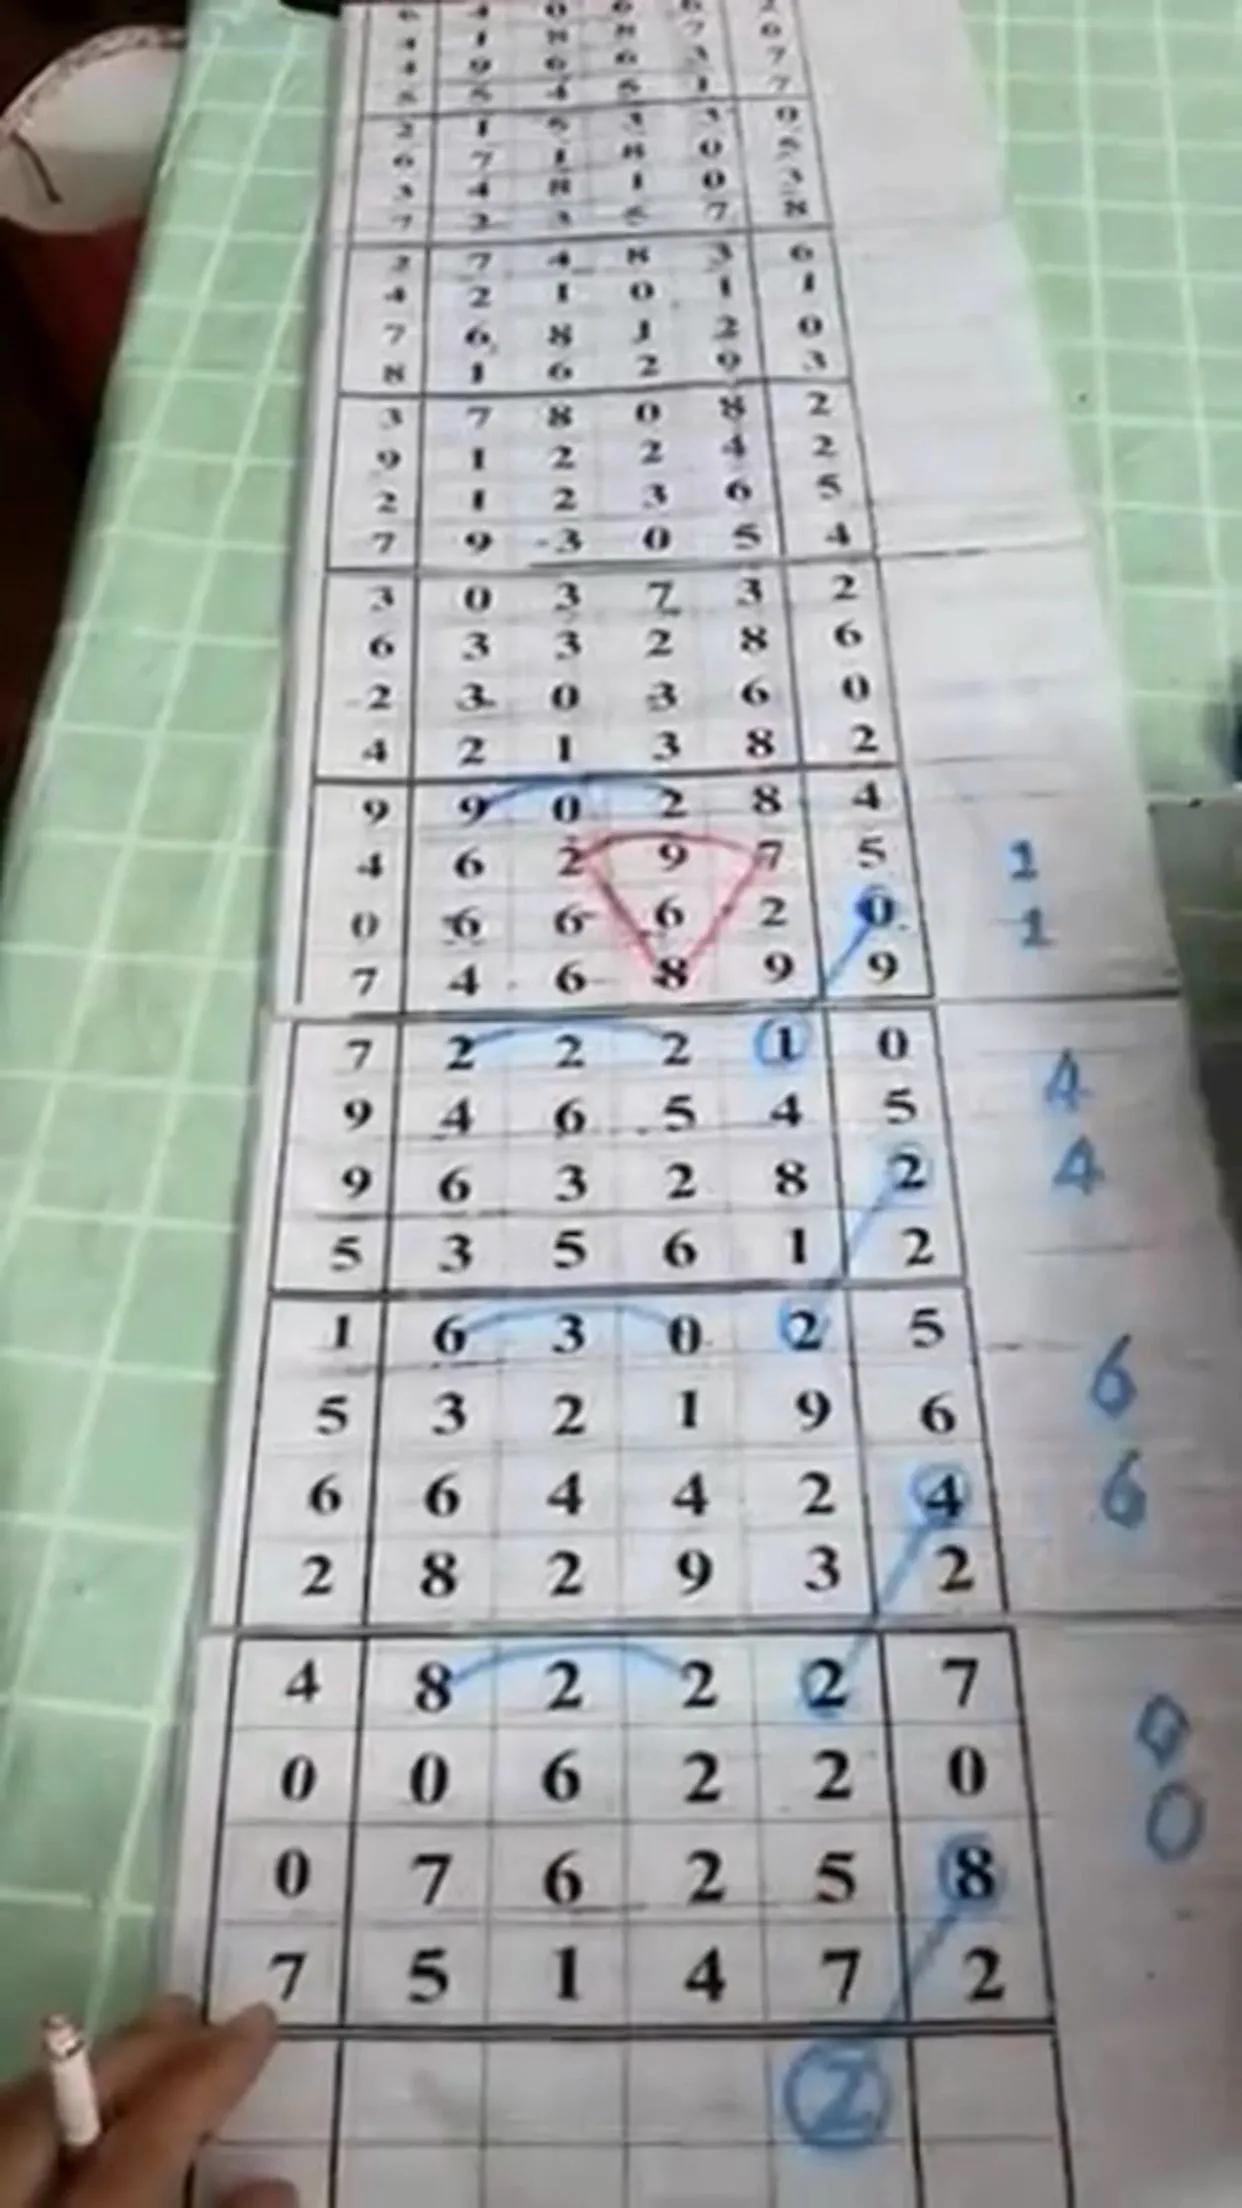 4 1 8 8 7 6
4 9 6 6 3 7
5 5 4 5 1 7
2 1 5 3 3 0
6 7 1 8 0 5
3 4 8 1 0 3
7 2 3 6 7 8
2 7 4 8 3 6
4 2 1 0 1 1
7 6 8 1 2 0
8 1 6 2 9 3
3 7 8 0 8 2
9 1 2 2 4 2
2 1 2 3 6 5
7 9 3 0 5 4
3 0 3 7 3 2
6 3 3 2 8 6
2 3 0 3 6 0
4 2 1 3 8 2
9 9 0 2 8 4
4 6 2 9 7 5 1
0 6 6 6 2 0 1
7 4 6 8 9 9
7 2 2 2 1 0 4
9 4 6 5 4 5
9 6 3 2 8 2 4
5 3 5 6 1 2
1 6 3 0 2 5 6
5 3 2 1 9 6
6 6 4 4 2 4 6
2 8 2 9 3 2
4 8 2 2 2 7 0
0 0 6 2 2 0 0
0 7 6 2 5 8
7 5 1 4 7 2
2